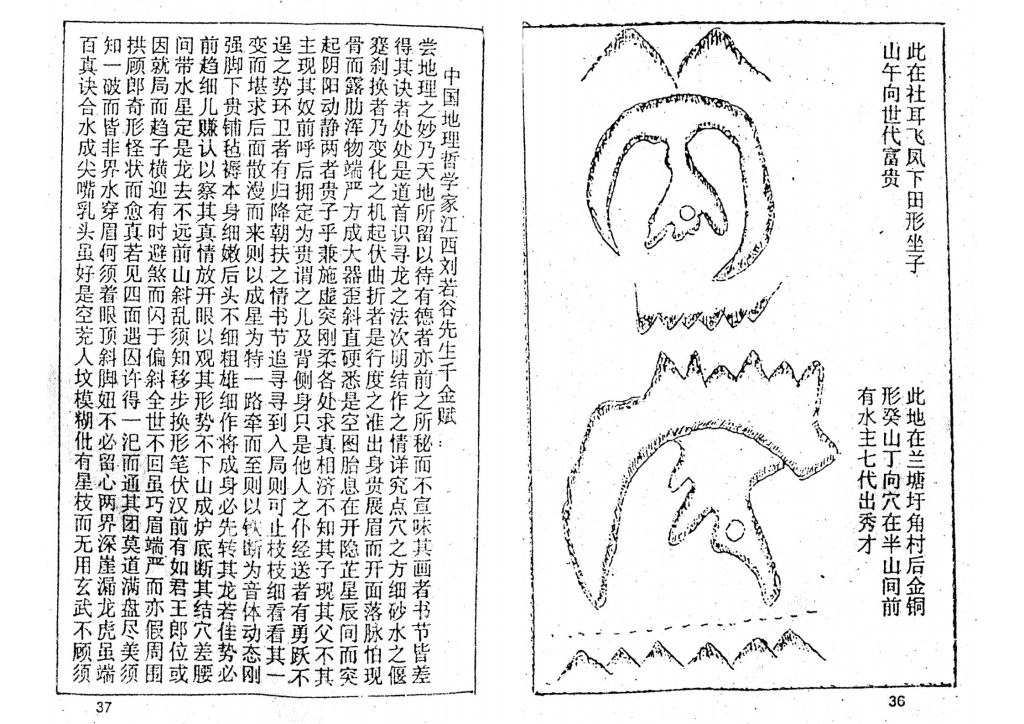 此在社耳飞凤下田形坐子
山午向世代富贵
此地在兰塘圩角村后金铜
形癸山丁向穴在半山间前
有水主七代出秀才
36
中国地理哲学家江西刘若谷先生千金赋：
尝地理之妙乃天地所留以待有德者亦前之所秘而不宣昧其画者书节皆差
得其诀者处处是道首识寻龙之法次明结作之情详究点穴之方细砂水之偃
蹇刹换者乃变化之机起伏曲折者是行度之准出身贵展眉而开面落脉怕现
骨而露肋浑物端严方成大器歪斜直硬悉是空图胎息在开隐芷星辰问而突
起阴阳动静两者贵子乎兼施虚突刚柔各处求真相济不知其子现其父不其
主现其奴前呼后拥定为贵谓之儿及背侧身只是他人之仆经送者有勇跃不
逞之势环卫者有归降朝扶之情书节追寻寻到入局则可止枝枝细看看其一
变而堪求后面散漫而来则以成星为特一路牵而至则以铁断为音体动态刚
强脚下贵铺毡褥本身细嫩后头不细粗雄细作将成身必先转其龙若佳势必
前趋细儿赚认以察其真情放开眼以观其形势不下山成炉底断其结穴差腰
问带水星定是龙去不远前山斜乱须知移步换形笔伏汉前有如君王郎位或
因就局而趋子横迎有时避煞而闪于偏斜全世不回虽巧眉端严而亦假周围
拱顾郎奇形怪状而愈真若见四面遇囚许得一汜而通其团莫道满盘尽美须
知一破而皆非界水穿眉何须着眼顶斜脚妞不必留心两界深崖漏龙虎虽端
百真诀合水成尖嘴乳头虽好是空茺人坟模糊仳有星枝而无用玄武不顾须
37